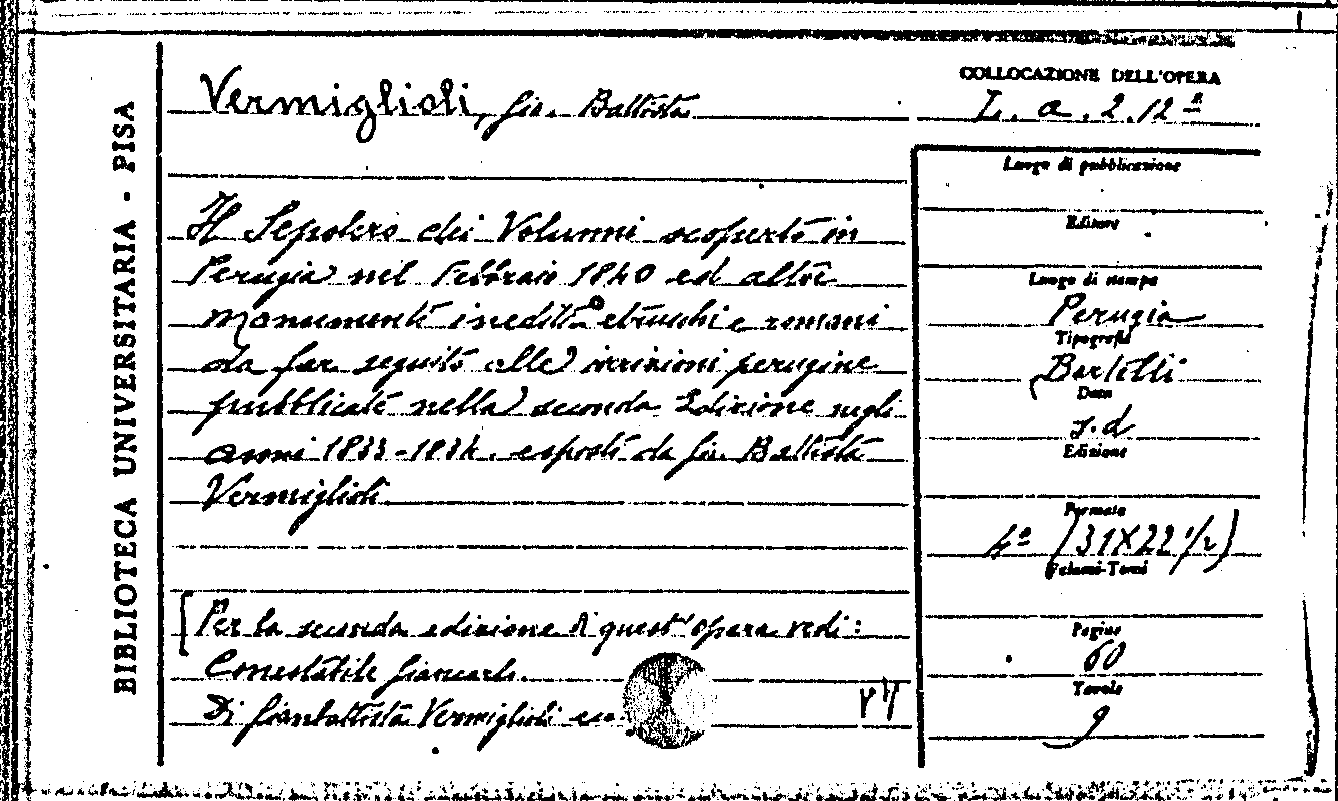 BIBLIOTECA UNIVERSITARIA - PISA
Vermiglioli, Gio. Battista
COLLOCAZIONE DELL'OPERA
L. a. 2. 12
Il Sepolcro dei Volunni scoperto in
Perugia nel Febbraio 1840 ed altri
monumenti inediti etruschi e romani
da far seguito alle iscrizioni perugine
pubblicate nella seconda Edizione negli
anni 1833-1834. esposti da Gio. Battista
Vermiglioli
[Per la seconda edizione di quest'opera vedi:
Conestabile Giancarlo.
Di Gianbattista Vermiglioli ecc.
Luogo di pubblicazione
Editore
Luogo di stampa
Perugia
Tipografia
Bartelli
Data
s.d
Edizione
Formato
4º (31X22 1/2)
Volumi-Tomi
Pagine
60
Tavole
9